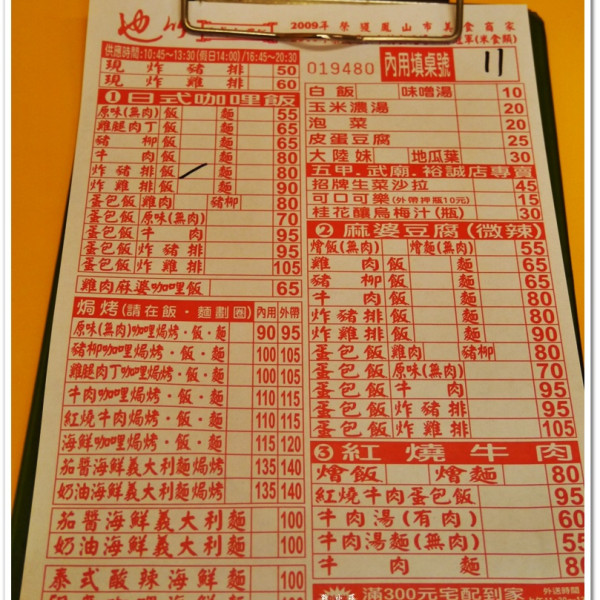 2009年榮獲鳳山市美食商家
供應時間:10:45~13:30(假日14:00)/16:45~20:30
現炸豬排 50
現炸雞排 60
019480 內用填桌號 11
①日式咖哩飯
原味(無肉)飯 麵 55
雞腿肉丁飯 麵 65
豬柳飯 麵 65
牛肉飯 麵 80
炸豬排飯 麵 80
炸雞排飯 麵 90
蛋包飯 雞肉 豬柳 80
蛋包飯 原味(無肉) 70
蛋包飯 牛肉 95
蛋包飯 炸豬排 95
蛋包飯 炸雞排 105
雞肉麻婆咖哩飯 65
焗烤(請在飯‧麵劃圈) 內用 外帶
原味(無肉)咖哩焗烤‧飯‧麵 90 95
豬柳咖哩焗烤‧飯‧麵 100 105
雞腿肉丁咖哩焗烤‧飯‧麵 100 105
牛肉咖哩焗烤‧飯‧麵 110 115
紅燒牛肉焗烤‧飯‧麵 110 115
海鮮咖哩焗烤‧飯‧麵 115 120
茄醬海鮮義大利麵焗烤 135 140
奶油海鮮義大利麵焗烤 135 140
茄醬海鮮義大利麵 100
奶油海鮮義大利麵 100
泰式酸辣海鮮麵 100
白飯 味噌湯 10
玉米濃湯 20
泡菜 20
皮蛋豆腐 25
大陸妹 地瓜葉 30
五甲、武廟、裕誠店專賣
招牌生菜沙拉 45
可口可樂(外帶押瓶10元) 15
桂花釀烏梅汁(瓶) 30
②麻婆豆腐(微辣)
燴飯(無肉) 燴麵(無肉) 55
雞肉飯 麵 65
豬柳飯 麵 65
牛肉飯 麵 80
炸豬排飯 麵 80
炸雞排飯 麵 90
蛋包飯 雞肉 豬柳 80
蛋包飯 原味(無肉) 70
蛋包飯 牛肉 95
蛋包飯 炸豬排 95
蛋包飯 炸雞排 105
③紅燒牛肉
燴飯 燴麵 80
紅燒牛肉蛋包飯 95
牛肉湯(有肉) 60
牛肉湯麵(無肉) 55
牛肉麵 80
滿300元宅配到家
外送時間